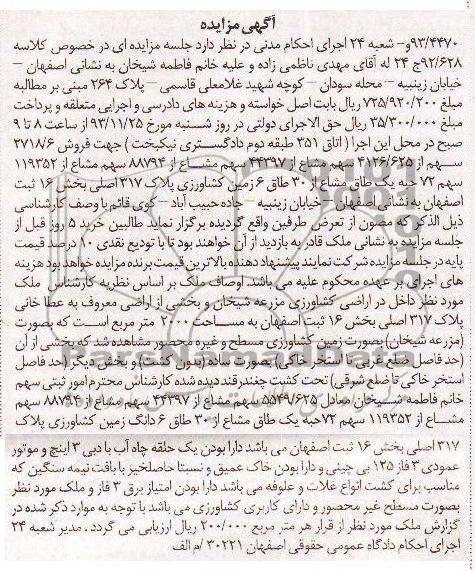 آگهی مزایده
۹۳/۴۴۷۰و- شعبه ۲۴ اجرای احکام مدنی در نظر دارد جلسه مزایده ای در خصوص کلاسه
۹۲/۶۲۸ج ۲۴ له آقای مهدی ناظمی زاده و علیه خانم فاطمه شیخان به نشانی اصفهان –
خیابان زینبیه – محله سودان – کوچه شهید غلامعلی قاسمی – پلاک ۲۶۴ مبنی بر مطالبه
مبلغ ۷۲۵/۹۲۰/۲۰۰ ریال بابت اصل خواسته و هزینه های دادرسی و اجرایی متعلقه و پرداخت
مبلغ ۳۵/۳۰۰/۰۰۰ ریال حق الاجرای دولتی در روز شنبه مورخ ۹۳/۱۱/۲۵ از ساعت ۸ تا ۹
صبح در محل این اجرا ( اتاق ۳۵۱ طبقه دوم دادگستری نیکبخت ) جهت فروش ۳۷۱۸/۶
سهم از ۴۱۲۶/۶۲۵ سهم مشاع از ۴۴۳۹۷ سهم مشاع از ۸۸۷۹۴ سهم مشاع از ۱۱۹۳۵۲
سهم ۷۲ حبه یک طاق مشاع از ۳۰ طاق ۶ زمین کشاورزی پلاک ۳۱۷ اصلی بخش ۱۶ ثبت
اصفهان به نشانی اصفهان – خیابان زینبیه – جاده حبیب آباد – کوی قائم با وصف کارشناسی
ذیل الذکر که مصون از تعرض طرفین واقع گردیده برگزار نماید طالبین خرید ۵ روز قبل از
جلسه مزایده به نشانی ملک قادر به بازدید از آن خواهند بود تا با تودیع نقدی ۱۰ درصد قیمت
پایه در جلسه مزایده شرکت نمایند پیشنهاد دهنده بالاترین قیمت برنده مزایده خواهد بود هزینه
های اجرای بر عهده محکوم علیه می باشد. اوصاف ملک بر اساس نظریه کارشناس ملک
مورد نظر داخل در اراضی کشاورزی مزرعه شیخان و بخشی از اراضی معروف به عطا خانی
پلاک ۳۱۷ اصلی بخش ۱۶ ثبت اصفهان به مساحت ۲۰۰۰ متر مربع است که بصورت
(مزرعه شیخان) بصورت زمین کشاورزی مسطح و غیره محصور مشاهده شد که بخشی از آن
(حد فاصل ضلع غربی تا استخر خاکی) بصورت ساده (بدون کشت) و بخش دیگر (حد فاصل
استخر خاکی تا ضلع شرقی) تحت کشت چغندرقند دیده شده کارشناش محترم امور ثبتی سهم
خانم فاطمه شیخان معادل ۵۵۴۹/۶۲۵ سهم مشاع از ۴۴۳۹۷ سهم مشاع از ۸۸۷۹۴ سهم
مشاع از ۱۱۹۳۵۲ سهم ۷۲حبه یک طاق مشاع از ۳۰ طاق ۶ دانگ زمین کشاورزی پلاک
۳۱۷ اصلی بخش ۱۶ ثبت اصفهان می باشد دارا بودن یک حلقه چاه آب با دبی ۳ اینچ و موتور
عمودی ۳ فاز ۱۲۵ بی چینی و دارا بودن خاک عمیق و نسبتا حاصلخیز با بافت نیمه سنگین که
مناسب برای کشت انواع غلات و علوفه می باشد دارا بودن امتیاز برق ۳ فاز و ملک مورد نظر
بصورت مسطح غیر محصور و دارای کاربری کشاورزی می باشد با توجه به موارد ذکر شده در
گزارش ملک مورد نظر از قرار هر متر مربع ۲۰۰/۰۰۰ ریال ارزیابی می گردد . مدیر شعبه ۲۴
اجرای احکام دادگاه عمومی حقوقی اصفهان ۳۰۲۲۱ /م الف